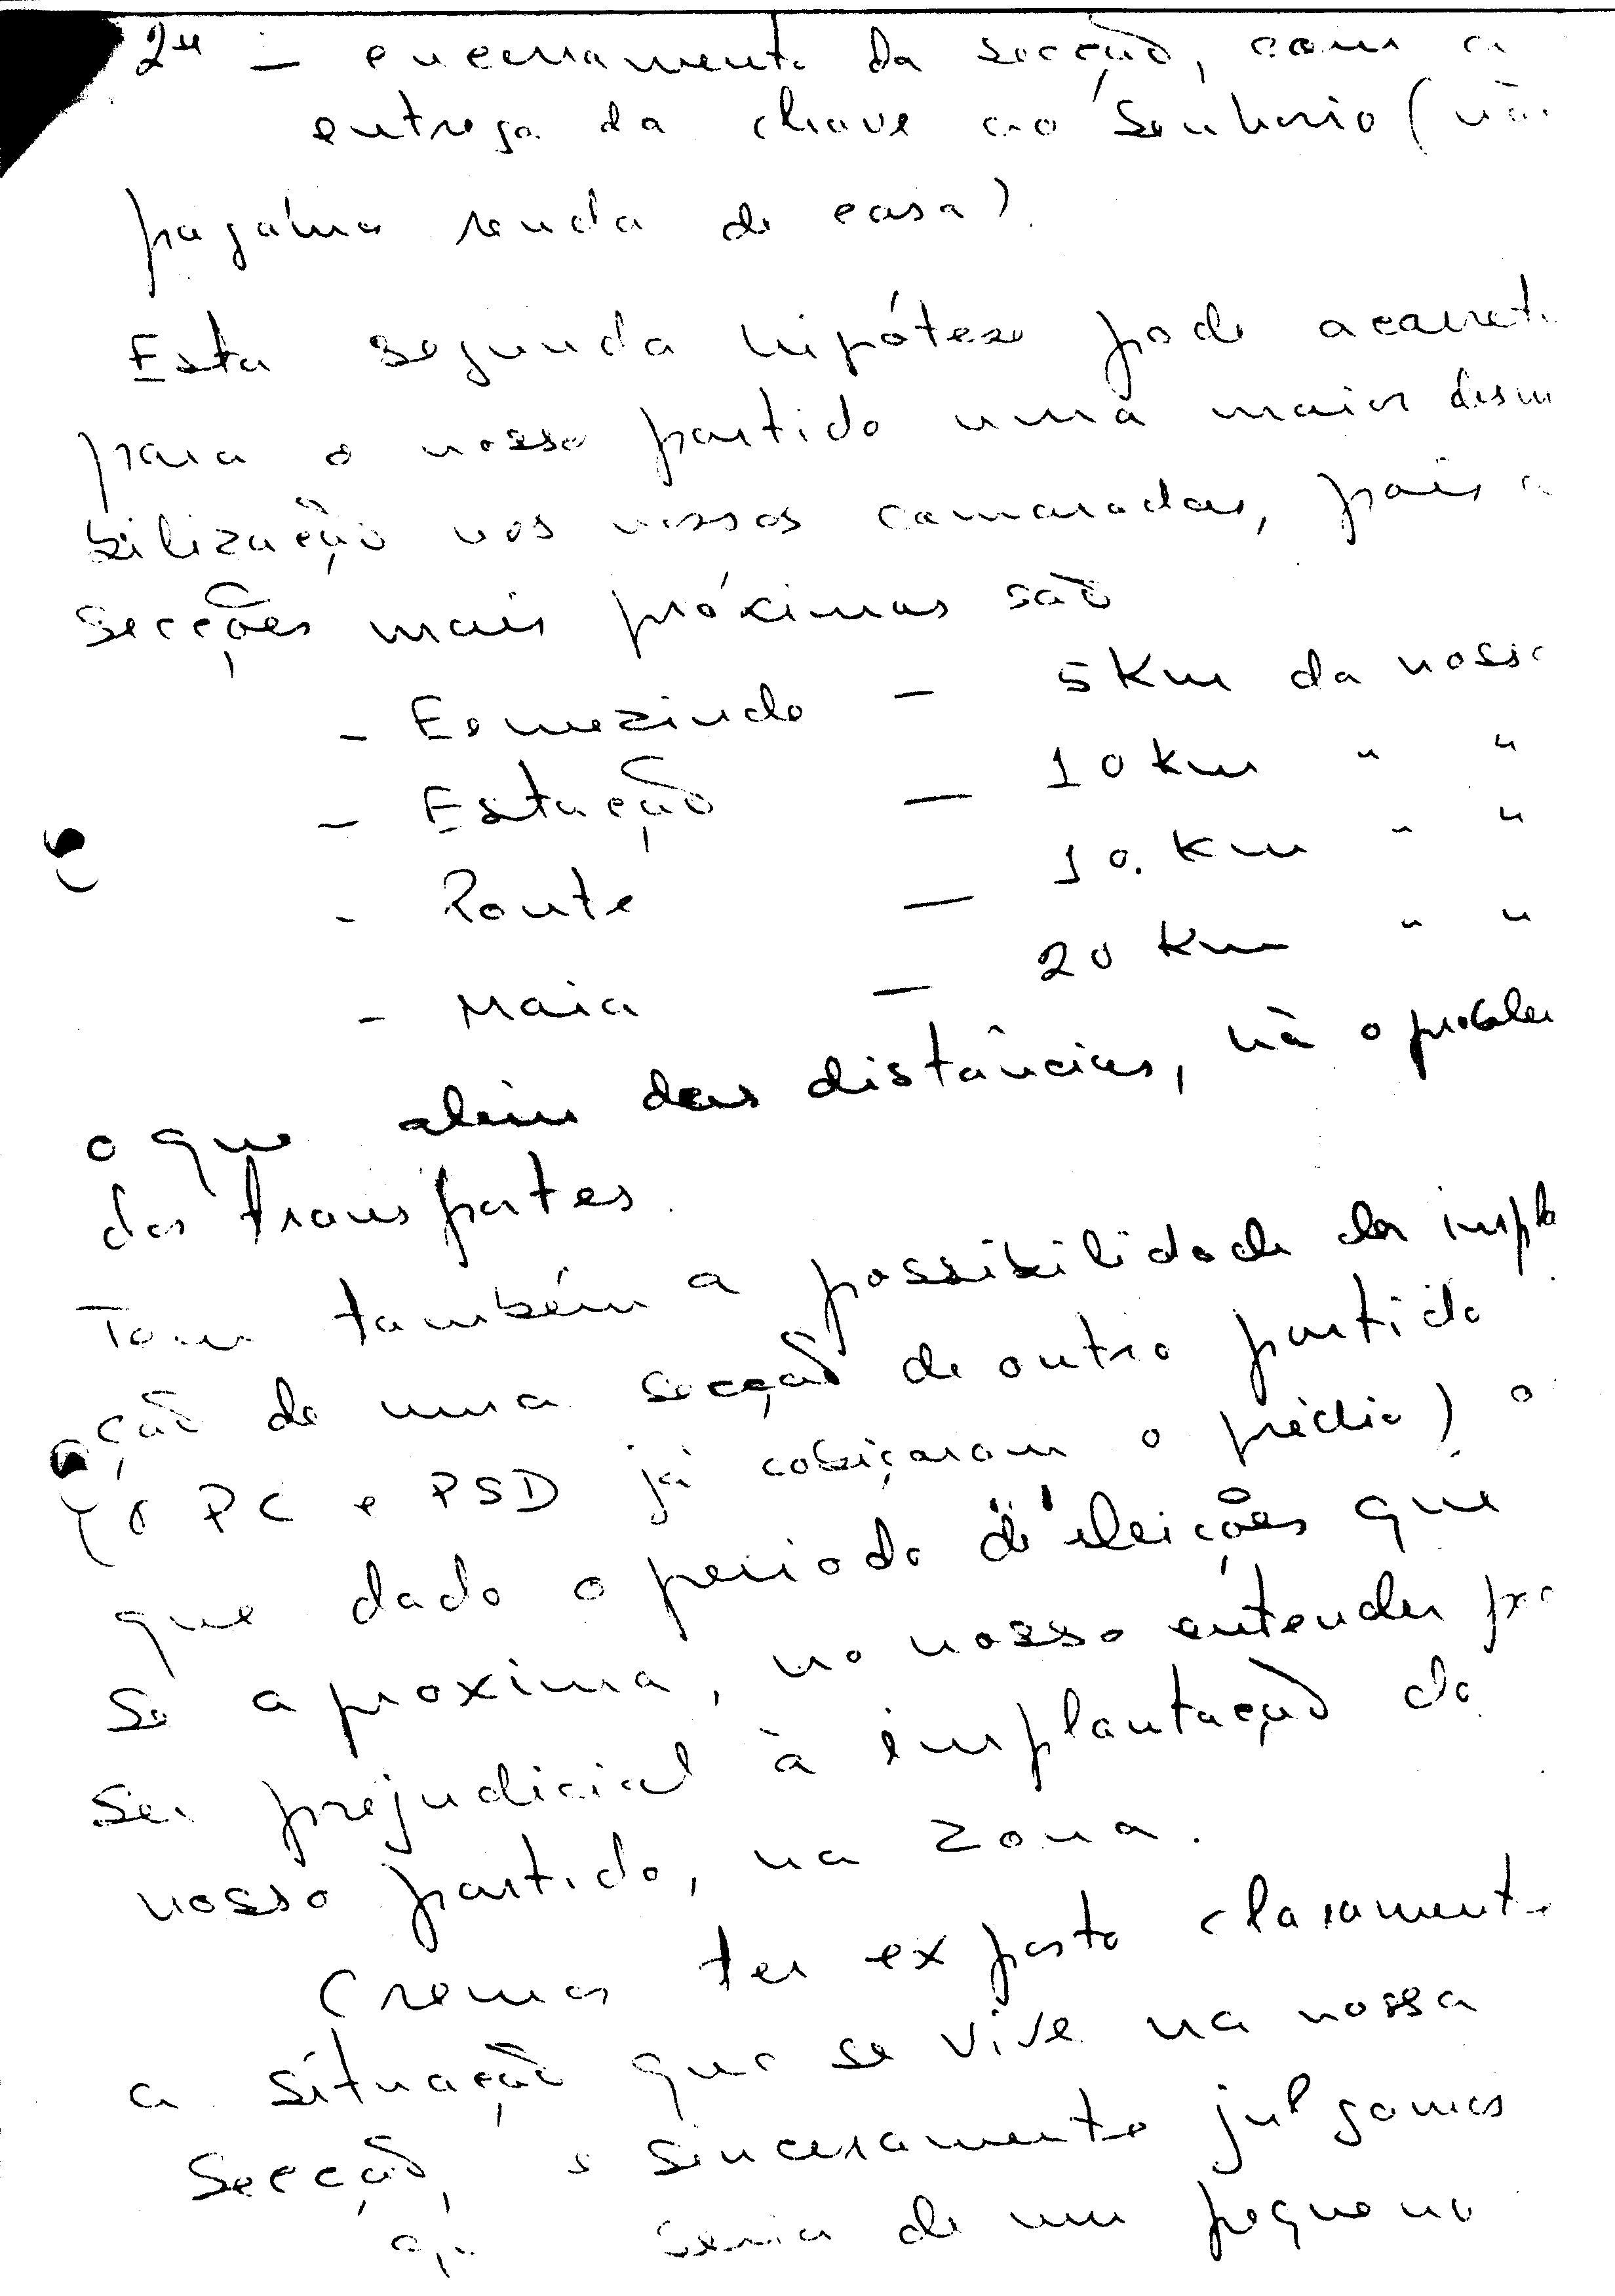 2ª - encerramento da secção, com a
entrega da chave ao Senhorio (não
pagámos renda de casa)
Esta segunda hipótese pode acarret
para o nosso partido uma maior desm
bilização nos nossos camaradas, pois a
secções mais próximas são
- Esmezinde - 5 Km da nossa
- Estação - 10 km " "
- Ponte - 10. Km " "
- Maia - 20 Km " "
o que além das distâncias, há o proble
dos transportes.
Tem também a possibilidade da impla
ção de uma secção de outro partido
(o PC e PSD já cobiçaram o prédio) o
que dado o periodo de eleições que
se aproxima, no nosso entender po
ser prejudicial à implantação do
nosso partido, na zona.
Cremos ter exposto claramente
a situação que se vive na nossa
Secção, e sinceramente julgamos
seria de um pequeno